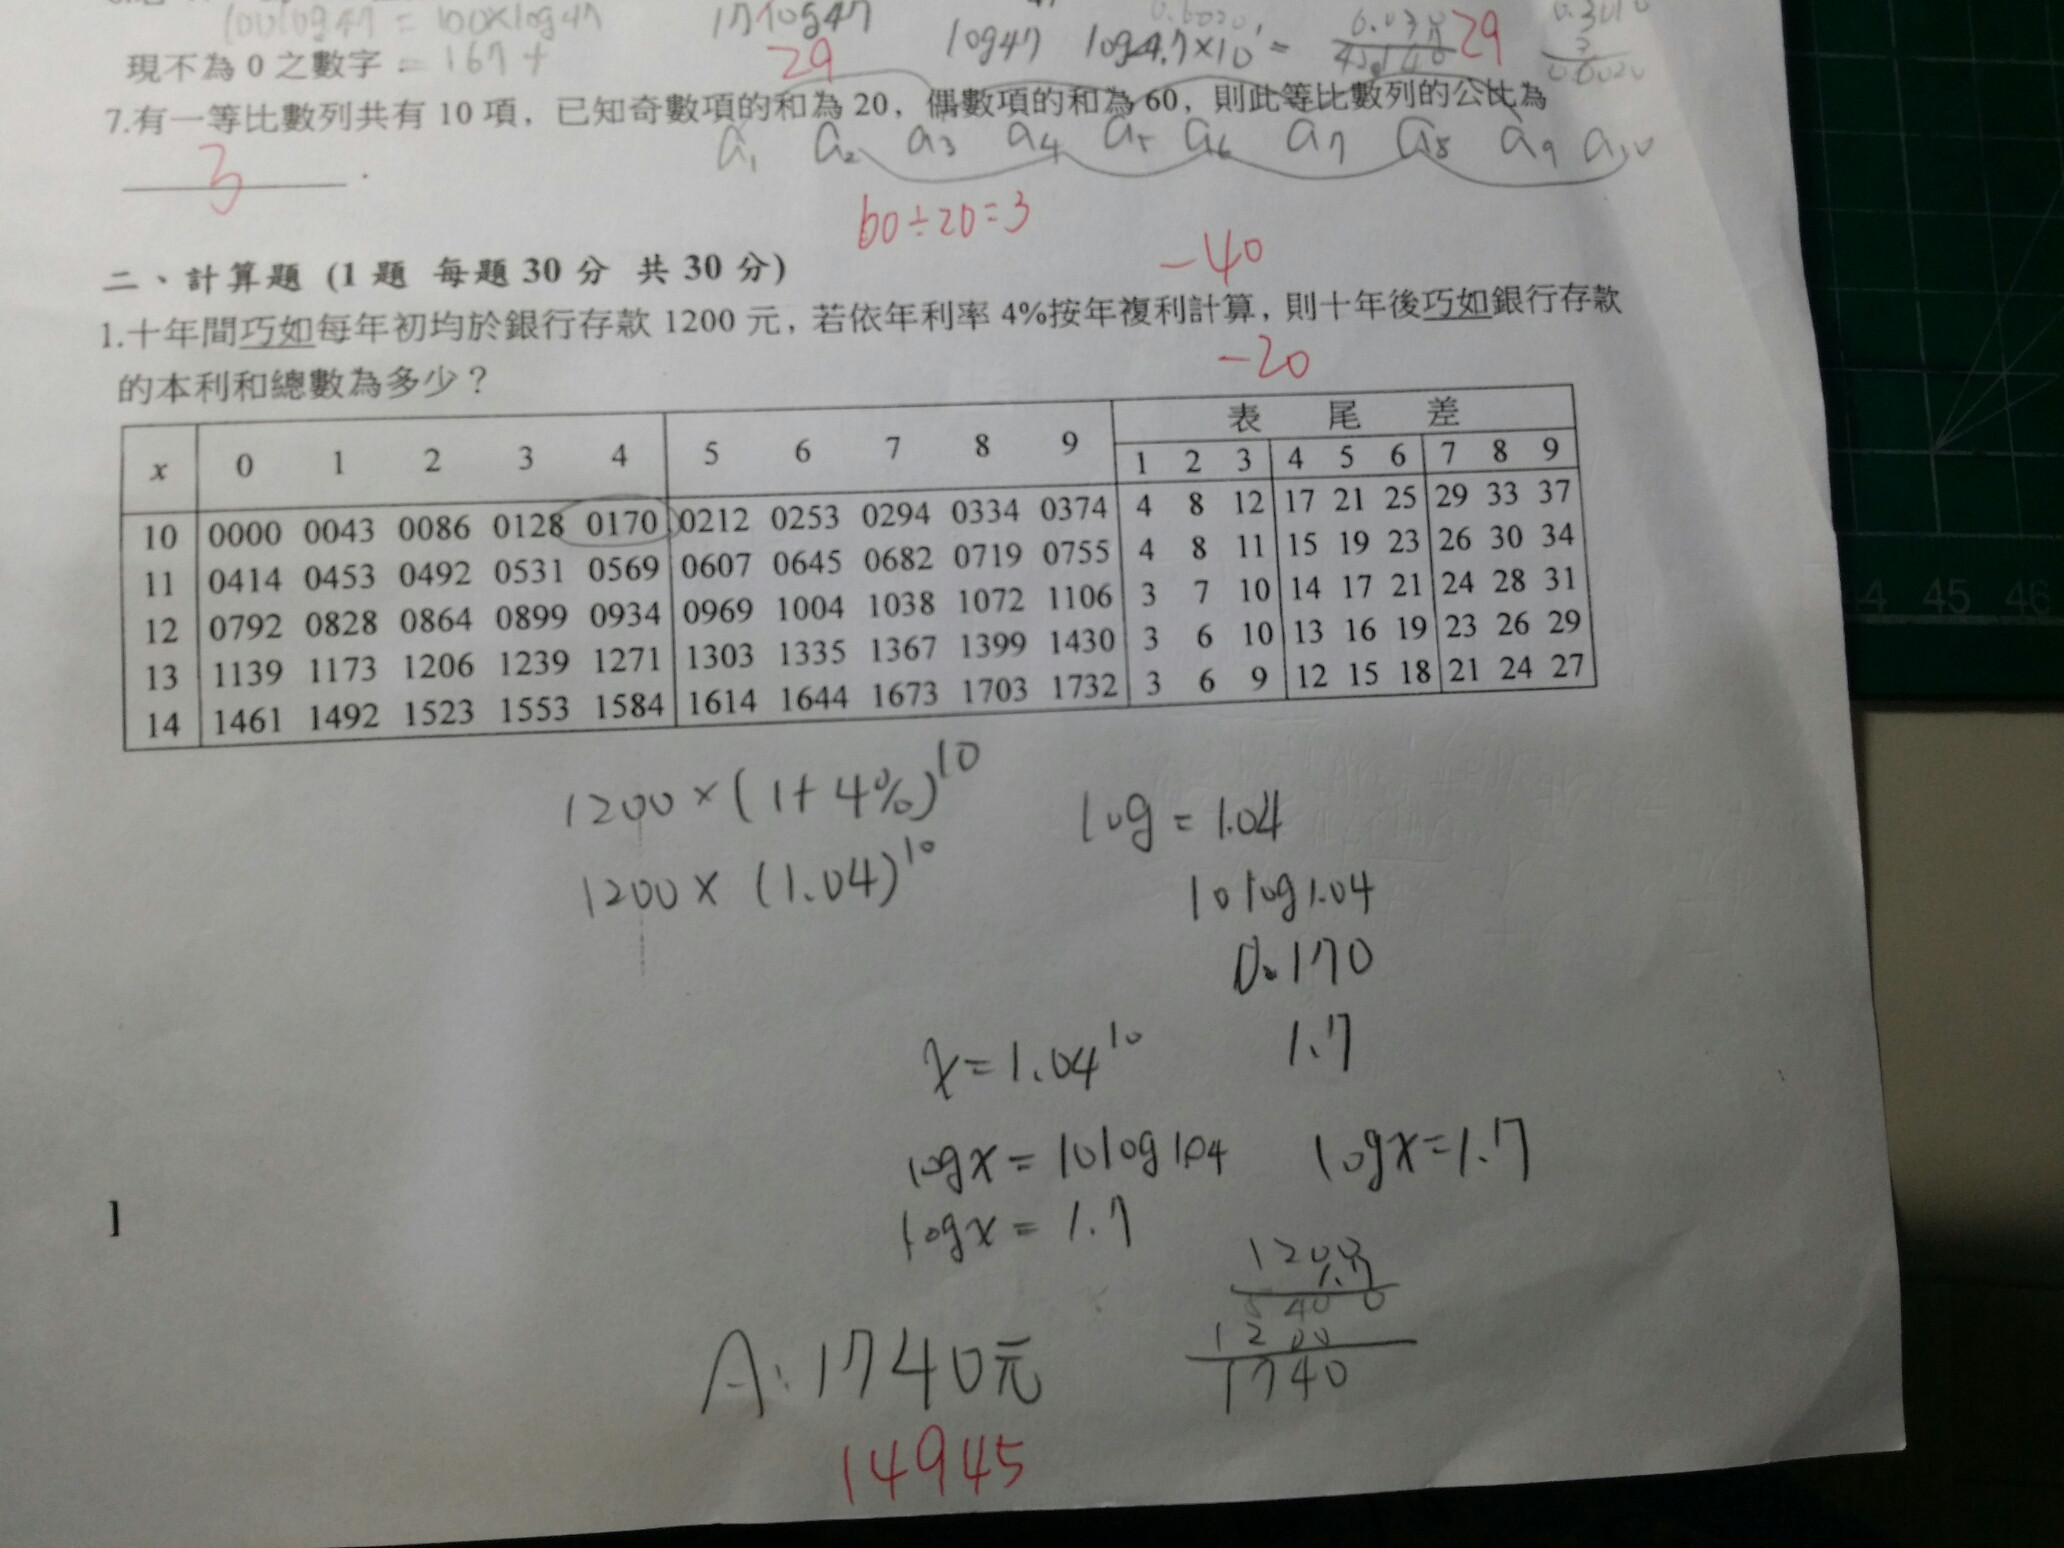 100log47 = 100×log47
17log47
29
log47 log4.7×10
29
現不為 0 之數字. = 167+
7.有一等比數列共有 10 項，已知奇數項的和為 20，偶數項的和為 60，則此等比數列的公比為
a1 a2 a3 a4 a5 a6 a7 a8 a9 a10
3
60÷20=3
-40
二、計算題 (1 題 每題 30 分 共 30 分)
1.十年間巧如每年初均於銀行存款 1200 元，若依年利率 4%按年複利計算，則十年後巧如銀行存款
-20
的本利和總數為多少？
表 尾 差
x 0 1 2 3 4 5 6 7 8 9 1 2 3 4 5 6 7 8 9
10 0000 0043 0086 0128 0170 0212 0253 0294 0334 0374 4 8 12 17 21 25 29 33 37
11 0414 0453 0492 0531 0569 0607 0645 0682 0719 0755 4 8 11 15 19 23 26 30 34
12 0792 0828 0864 0899 0934 0969 1004 1038 1072 1106 3 7 10 14 17 21 24 28 31
13 1139 1173 1206 1239 1271 1303 1335 1367 1399 1430 3 6 10 13 16 19 23 26 29
14 1461 1492 1523 1553 1584 1614 1644 1673 1703 1732 3 6 9 12 15 18 21 24 27
1200×(1+4%)10
log=1.04
1200×(1.04)10
10log1.04
0.170
1.7
x=1.0410
logx=10log1.04
logx=1.7
logx=1.7
1200
1200
1740
A:1740元
14945
45 46